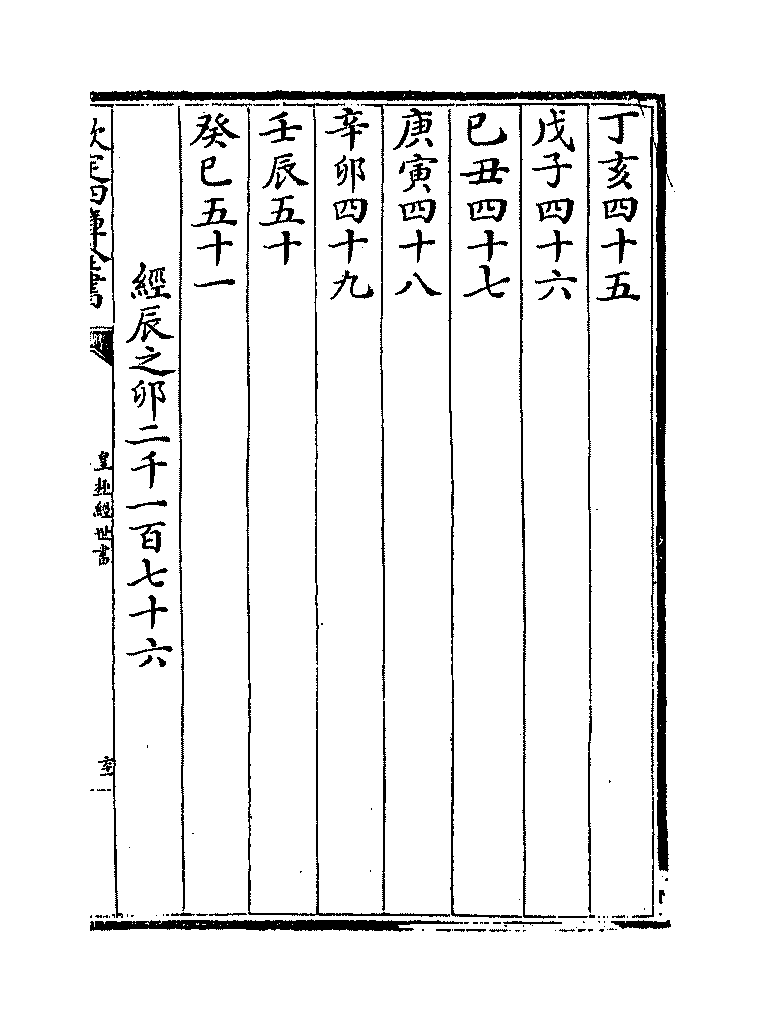 丁亥四十五
戊子四十六
已丑四十七
庚寅四十八
辛卯四十九
壬辰五十
癸巳五十一
經辰之卯二千一百七十六
欽定四庫全書
皇極經世書